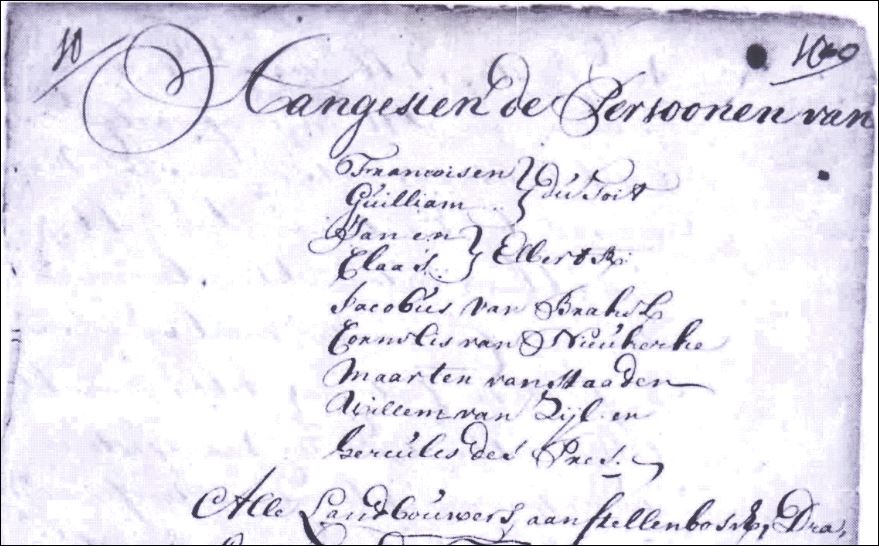 10 10
Aangesien de Persoonen van
Francois en } du Toit
Guilliam
Jan en } Elberts
Claas
Jacobus van Brakel
Cornelis van Nieukerke
Maarten van Staaden
Willem van Zijl en
Hercules des Pres.
Alle Landbouwers, aan Stellenbosch, Dra,